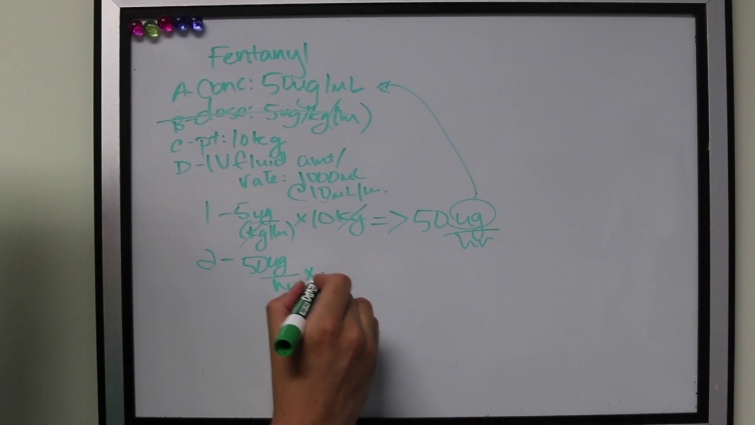 Fentanyl
A-Conc: 50ug/mL
B-dose: 5ug/kg/hr)
C-pt: 10kg
D-IV fluid amt/
rate: 1000mL
@10mL/hr.
1- 5ug/(kg/hr) x 10kg => 50 ug/hr
2- 50ug/hr x
EXPO